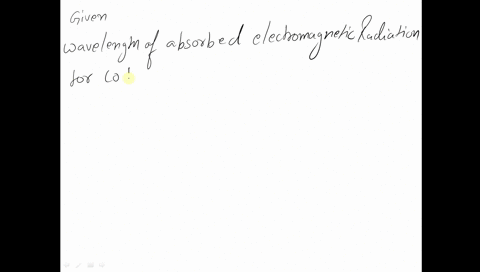 Given
wavelength of absorbed electromagnetic Radiation
for